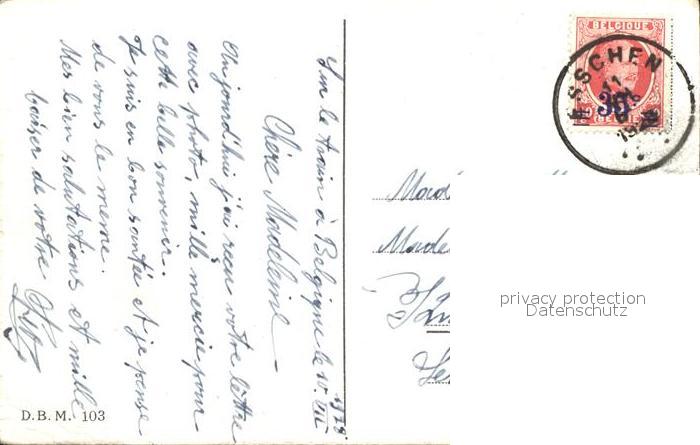 Sur le train à Belgique le 10. VIII
1929.
Chère Madeleine —
Aujourd'hui j'ai reçu votre lettre
avec photo, mille mercie pour
cette belle souvenir.
Je suis en bon santée et je pense
de vous le meme.
Mes bien salutations et mille
baiser de votre
D.B.M. 103
BELGIQUE
ESSCHEN
11
30
privacy protection
Datenschutz
Made